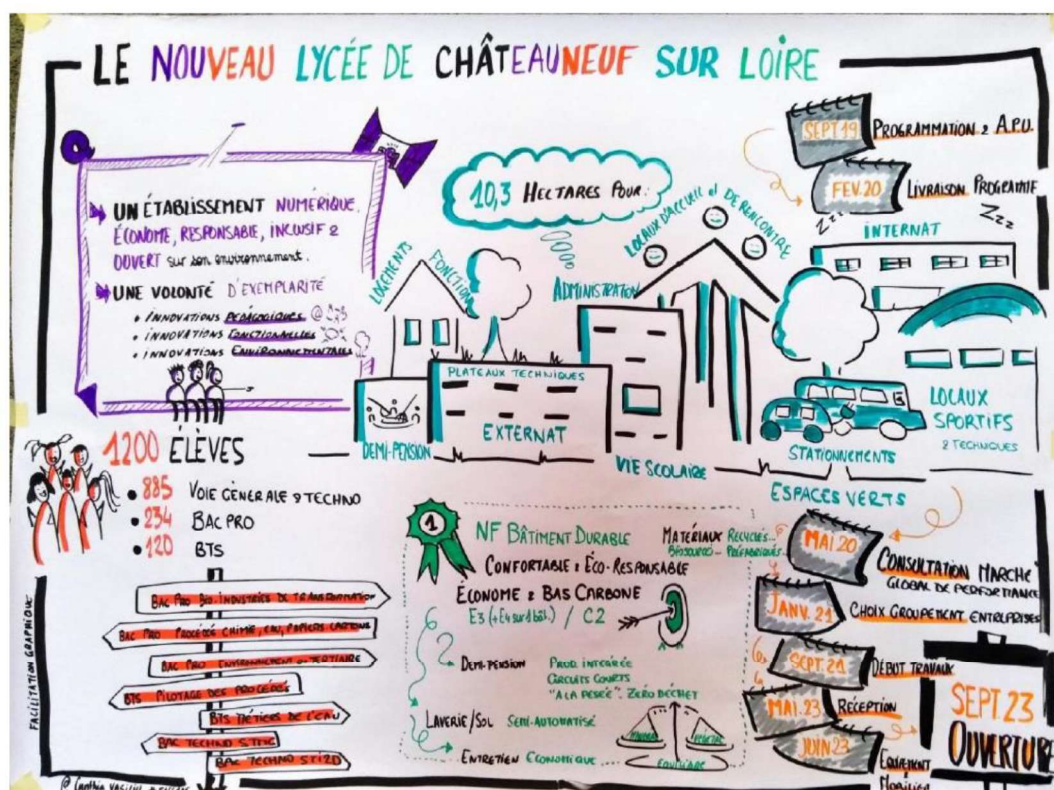 LE NOUVEAU LYCÉE DE CHÂTEAUNEUF SUR LOIRE
UN ÉTABLISSEMENT NUMÉRIQUE,
ÉCONOME, RESPONSABLE, INCLUSIF &
OUVERT sur son environnement.
UNE VOLONTÉ D'EXEMPLARITÉ
• INNOVATIONS PÉDAGOGIQUES
• INNOVATIONS FONCTIONNELLES
• INNOVATIONS ENVIRONNEMENTALES
10,3 HECTARES POUR:
LOGEMENTS FONCTION
ADMINISTRATION
LOCAUX D'ACCUEIL et DE RENCONTRE
SEPT 19 PROGRAMMATION & A.P.U.
FEV. 20 LIVRAISON PROGRAMME
ZZZ
ZZZ
INTERNAT
PLATEAUX TECHNIQUES
EXTERNAT
DEMI-PENSION
VIE SCOLAIRE
STATIONNEMENTS
LOCAUX
SPORTIFS
& TECHNIQUES
ESPACES VERTS
1200 ÉLÈVES
• 885 VOIE GÉNÉRALE & TECHNO
• 234 BAC PRO
• 120 BTS
BAC PRO BIO-INDUSTRIES DE TRANSFORMATION
BAC PRO PROCÉDÉ CHIMIE, EAU, PAPIERS CARTONS
BAC PRO ENVIRONNEMENT
BTS PILOTAGE DES PROCÉDÉS
BTS MÉTIERS DE L'EAU
BAC TECHNO STMG
BAC TECHNO STI2D
1
NF BÂTIMENT DURABLE
CONFORTABLE & ÉCO-RESPONSABLE
ÉCONOME & BAS CARBONE
E3 (+E4 sur 1 bât.) / C2
MATÉRIAUX RECYCLÉS...
BIOSOURCÉS... PRÉFABRIQUÉS...
DEMI-PENSION PROD. INTÉGRÉE
CIRCUITS COURTS
"A LA PESÉE". ZÉRO DÉCHET
LAVERIE/SOL SEMI-AUTOMATISÉ
ENTRETIEN ÉCONOMIQUE
MAI.20 CONSULTATION MARCHÉ
GLOBAL DE PERFORMANCE
JANV. 21 CHOIX GROUPEMENT ENTREPRISES
SEPT. 21 DÉBUT TRAVAUX
MAI. 23 RÉCEPTION
JUIN 23 ÉQUIPEMENT
MOBILIER
SEPT 23
OUVERTURE
FACILITATION GRAPHIQUE